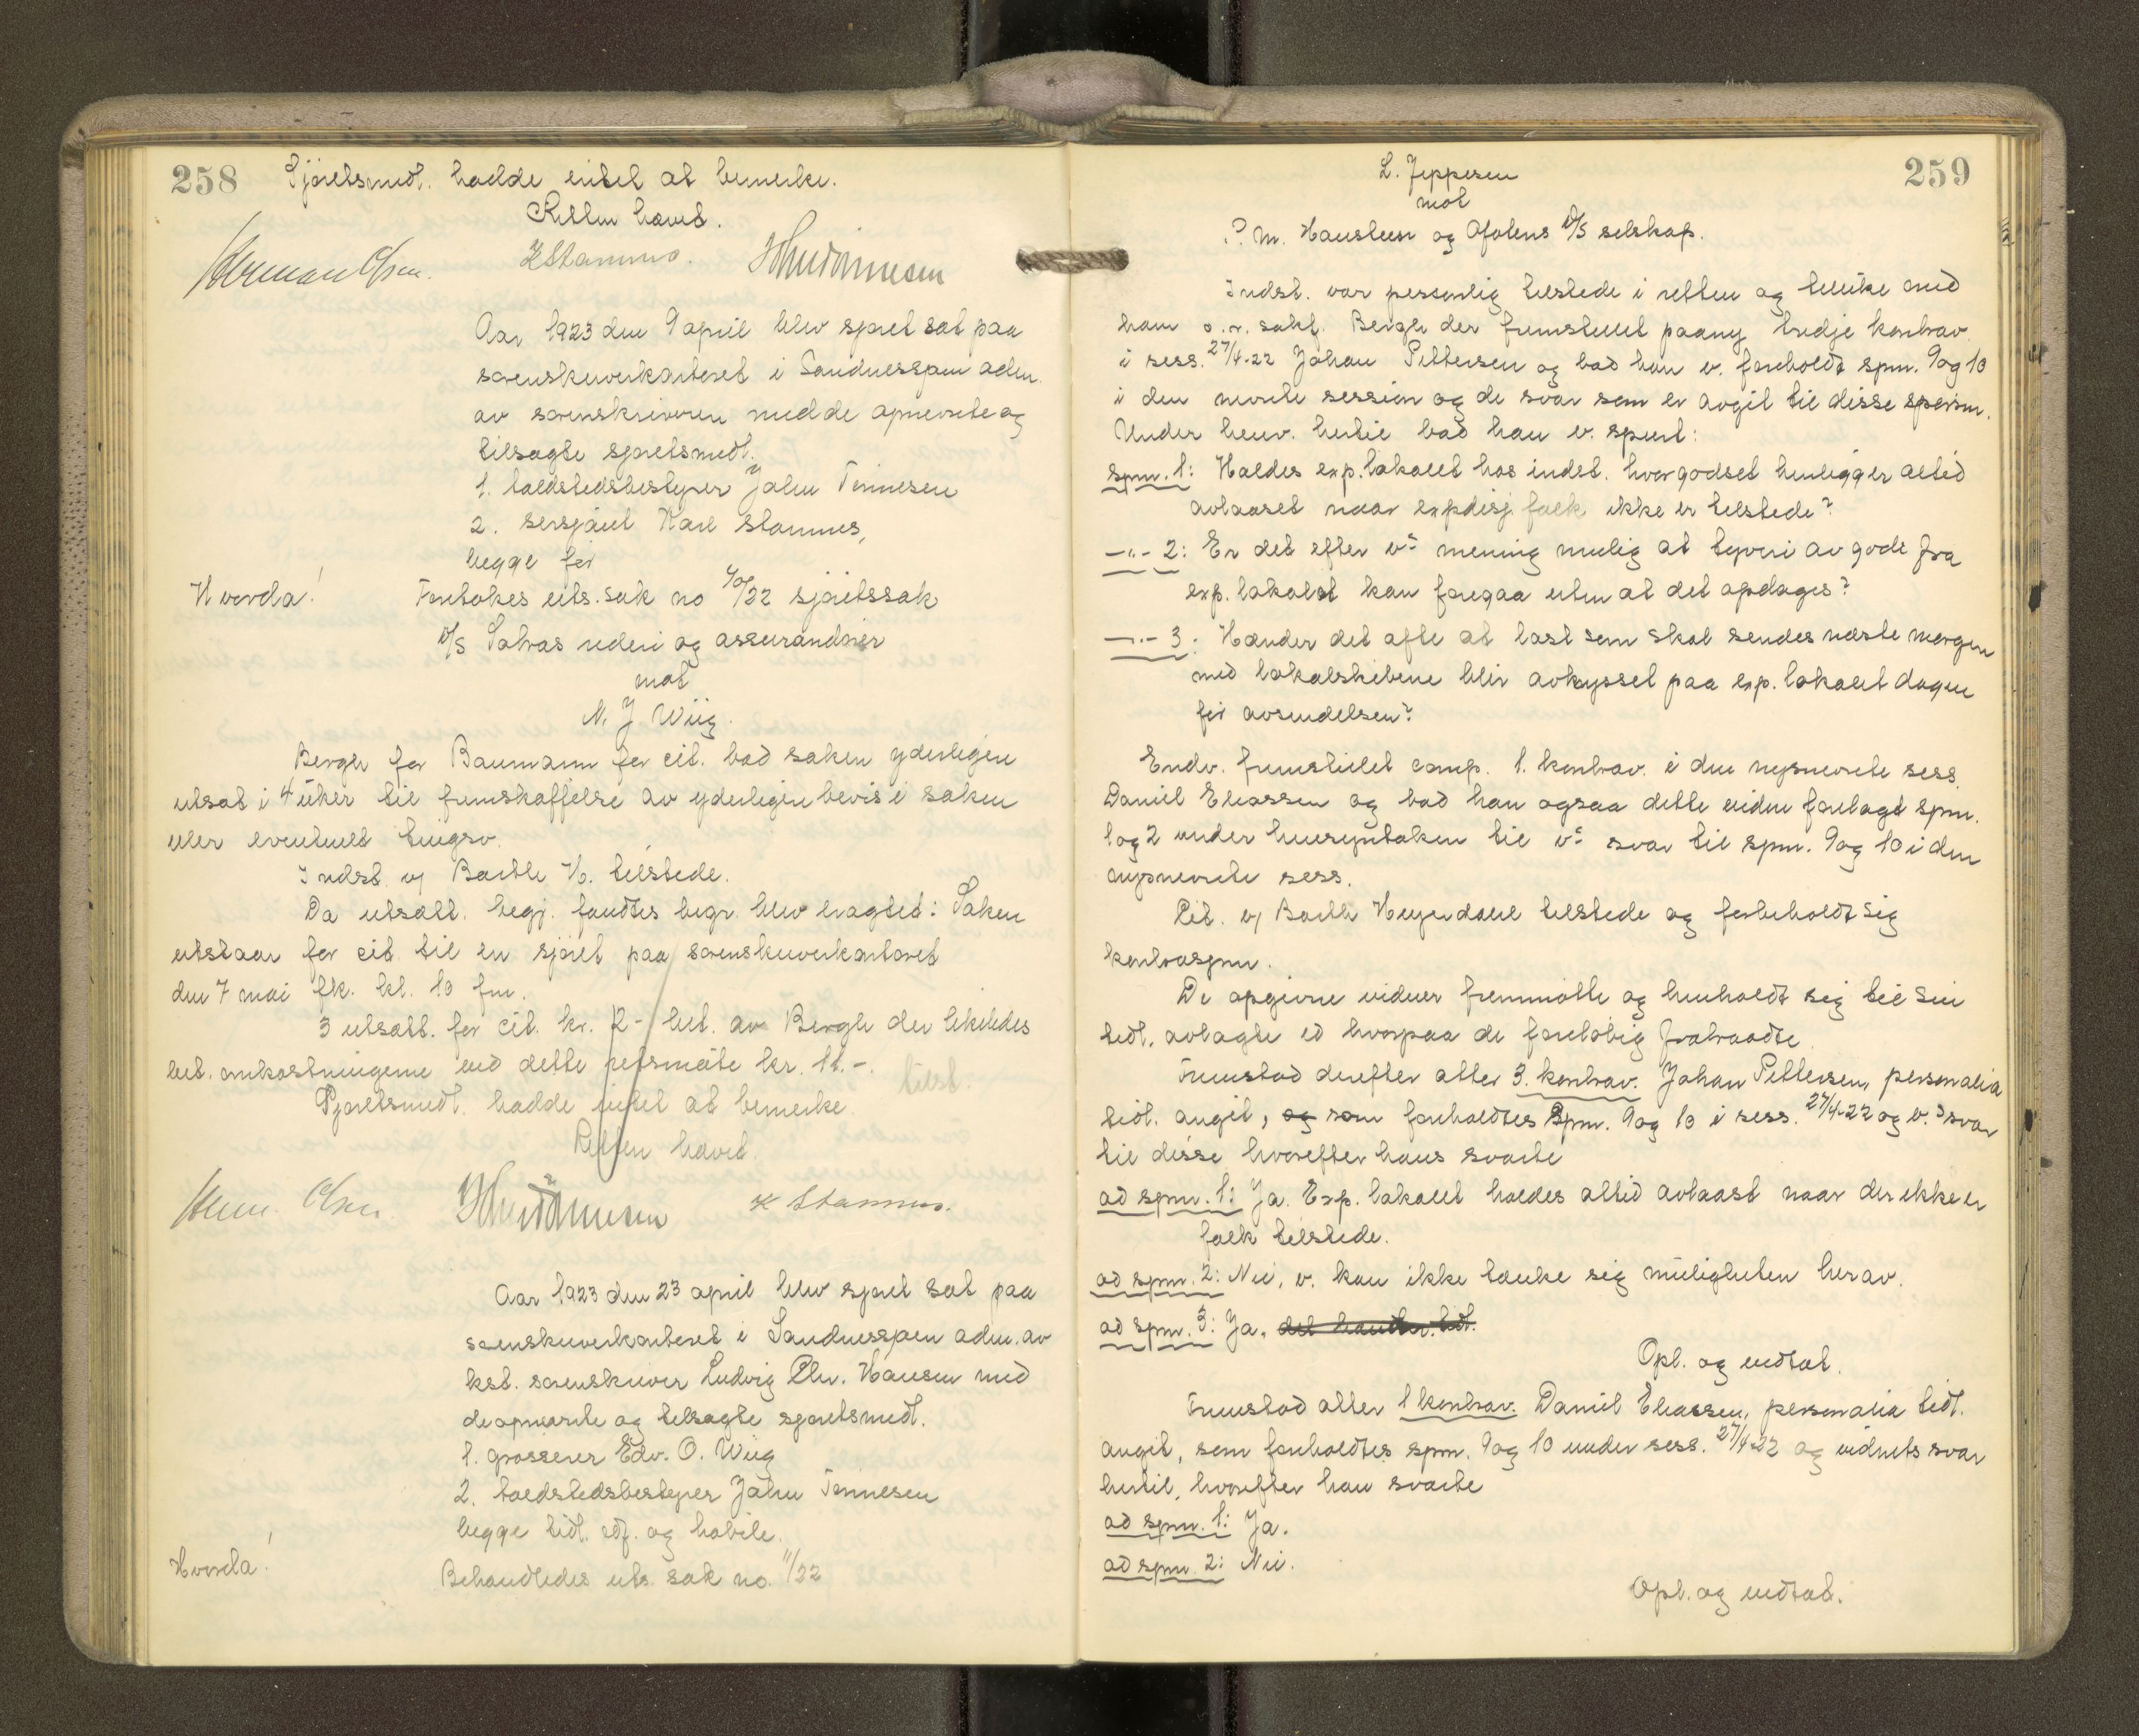 258 Sjøretsmedl. hadde intet at bemerke.
Retten hævet.
Herman Olsen. K Stamnes. John Tønnesen
Aar 1923 den 9 april blev sjøret sat paa
sorenskriverkontoret i Sandnessjøen adm.
av sorenskriveren med de opnævnte og
tilsagte sjøretsmedl.
1. toldstedsbestyrer John Tønnesen
2. sersjant Karl Stamnes,
begge før
Hvorda! Foretokes uts. sak no 40/22 sjøretssak
D/S Salvas rederi og assurandører
mot
N. J Wiig.
Bergh for Baumann for cit. bad saken yderligere
utsat i 4 uker til fremskaffelse av yderligere bevis i saken
eller eventuelt tingsv.
Indst. v/ Barth H. tilstede.
Da utsætt. begj. fandtes begr. blev eragtet: Saken
utstaar for cit. til en sjøret paa sorenskriverkontoret
den 7 mai fk. kl. 10 fm.
3 utsætt. for cit. kr. 12- bet. av Bergh der likeledes
bet. omkostningerne ved dette retsmøte kr. 11.-. tilst.
Sjøretsmedl. hadde intet at bemerke.
Retten hævet.
Herm. Olsen. John Tønnesen K Stamnes.
Aar 1923 den 23 april blev sjøret sat paa
sorenskriverkontoret i Sandnessjøen adm. av
kst. sorenskriver Ludvig Chr. Hansen med
de opnævnte og tilsagte sjøretsmedl.
1. grosserer Edv. O. Wiig
2. toldstedsbestyrer John Tønnesen
begge tidl. edf. og habile.
Hvorda! Behandledes uts. sak no. 11/22
259
L. Jeppesen
mot
P. M. Hansteen og Ofotens D/S selskap.
Indst. var personlig tilstede i retten og tillike med
ham o.r. sakf. Bergh der fremstillet paany tredje kontrav.
i sess. 27/4-22 Johan Pettersen og bad han v. foreholdt spm. 9 og 10
i den nævnte session og de svar som er avgit til disse spørsm.
Under henv. hertil bad han v. spurt:
spm. 1: Holdes exp. lokalet hos indst. hvor godset henligger altid
avlaaset naar expdisj. folk ikke er tilstede?
—"— 2: Er det efter v.s mening mulig at tyveri av gods fra
exp. lokalet kan foregaa uten at det opdages?
—"— 3: Hænder det ofte at last som skal sendes næste morgen
med lokalskibene blir avkyssel paa exp. lokalet dagen
før avsendelsen?
Endv. fremstillet comp. 1. kontrav. i den nysnævnte sess.
Daniel Eliassen og bad han ogsaa dette vidne forelagt spm.
1 og 2 under hensyntaken til v.s svar til spm. 9 og 10 i den
nysnævnte sess.
Cit. v/ Barth Heyerdahl tilstede og forbeholdt sig
kontraspm.
De opgivne vidner fremmøtte og henholdt sig til sin
tidl. avlagte ed hvorpaa de foreløbig fratraadte.
Fremstod derefter atter 3. kontrav. Johan Pettersen, personalia
tidl. angit, og som foreholdtes spm. 9 og 10 i sess. 27/4-22 og v.s svar
til disse hvorefter hans svarte
ad spm. 1: Ja. Exp. lokalet holdes altid avlaast naar der ikke er
folk tilstede.
ad spm. 2: Nei, v. kan ikke tænke sig muligheten herav.
ad spm. 3: Ja, det hænder tidt.
Opl. og vedtat.
Fremstod atter 1 kontrav. Daniel Eliassen, personalia tidl.
angit, som foreholdtes spm. 9 og 10 under sess. 27/4-22 og vidnets svar
hertil, hvorefter han svarte
ad spm. 1: Ja.
ad spm. 2: Nei.
Opl. og vedtat.